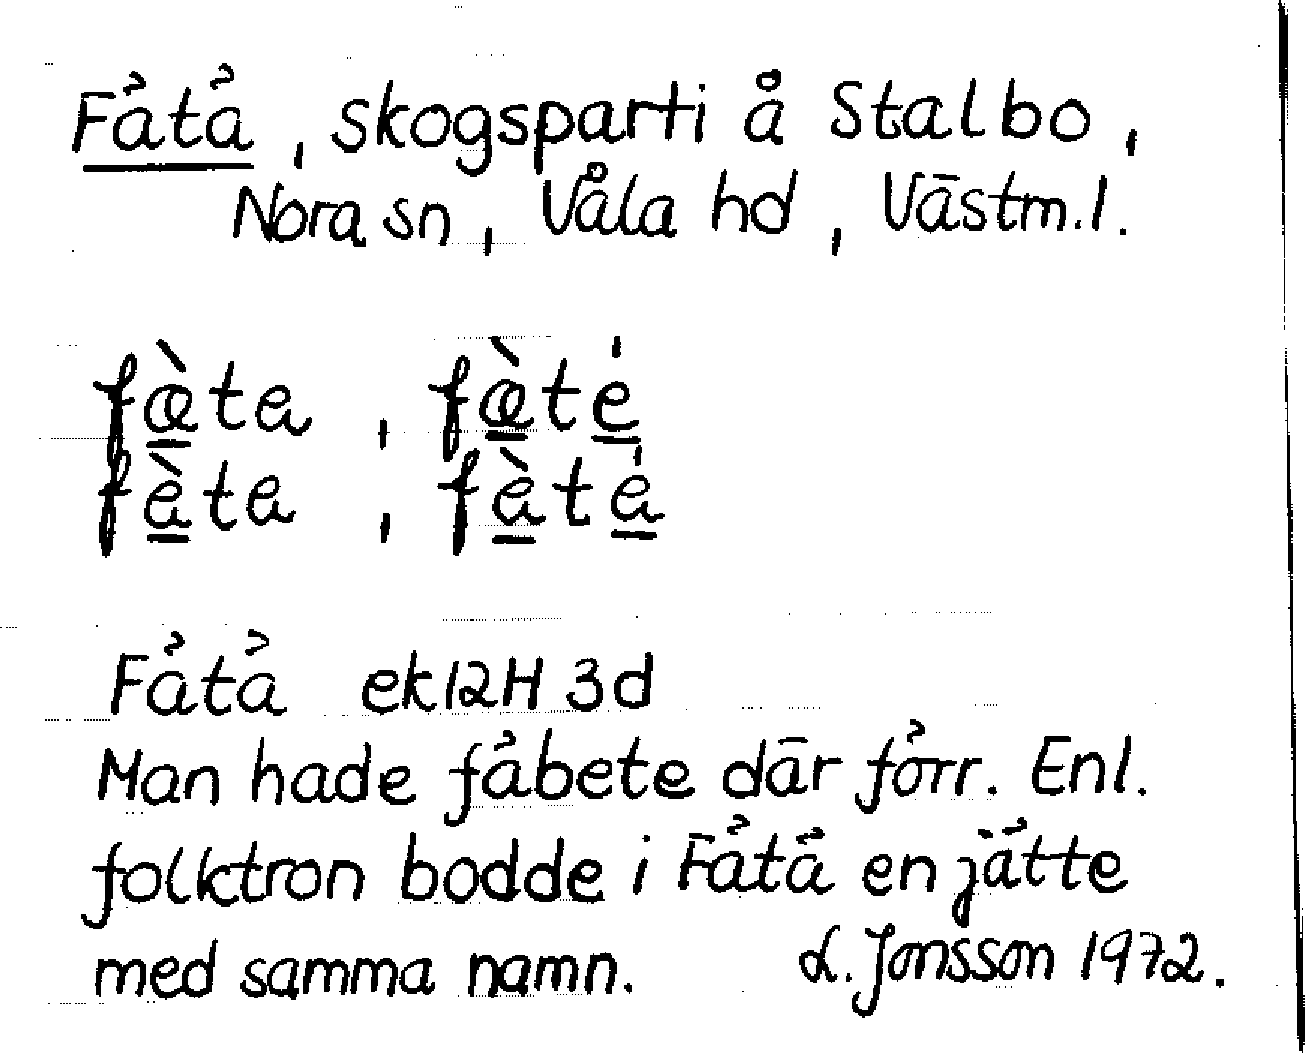 Fåtå, skogsparti å Stalbo,
Nora sn, Våla hd, Västm.l.
fæ̀ta, fæ̀té
fàta, fàtá
Fåtå ek12H3d
Man hade fåbete där förr. Enl.
folktron bodde i Fåtå en jätte
med samma namn. L. Jonsson 1972.